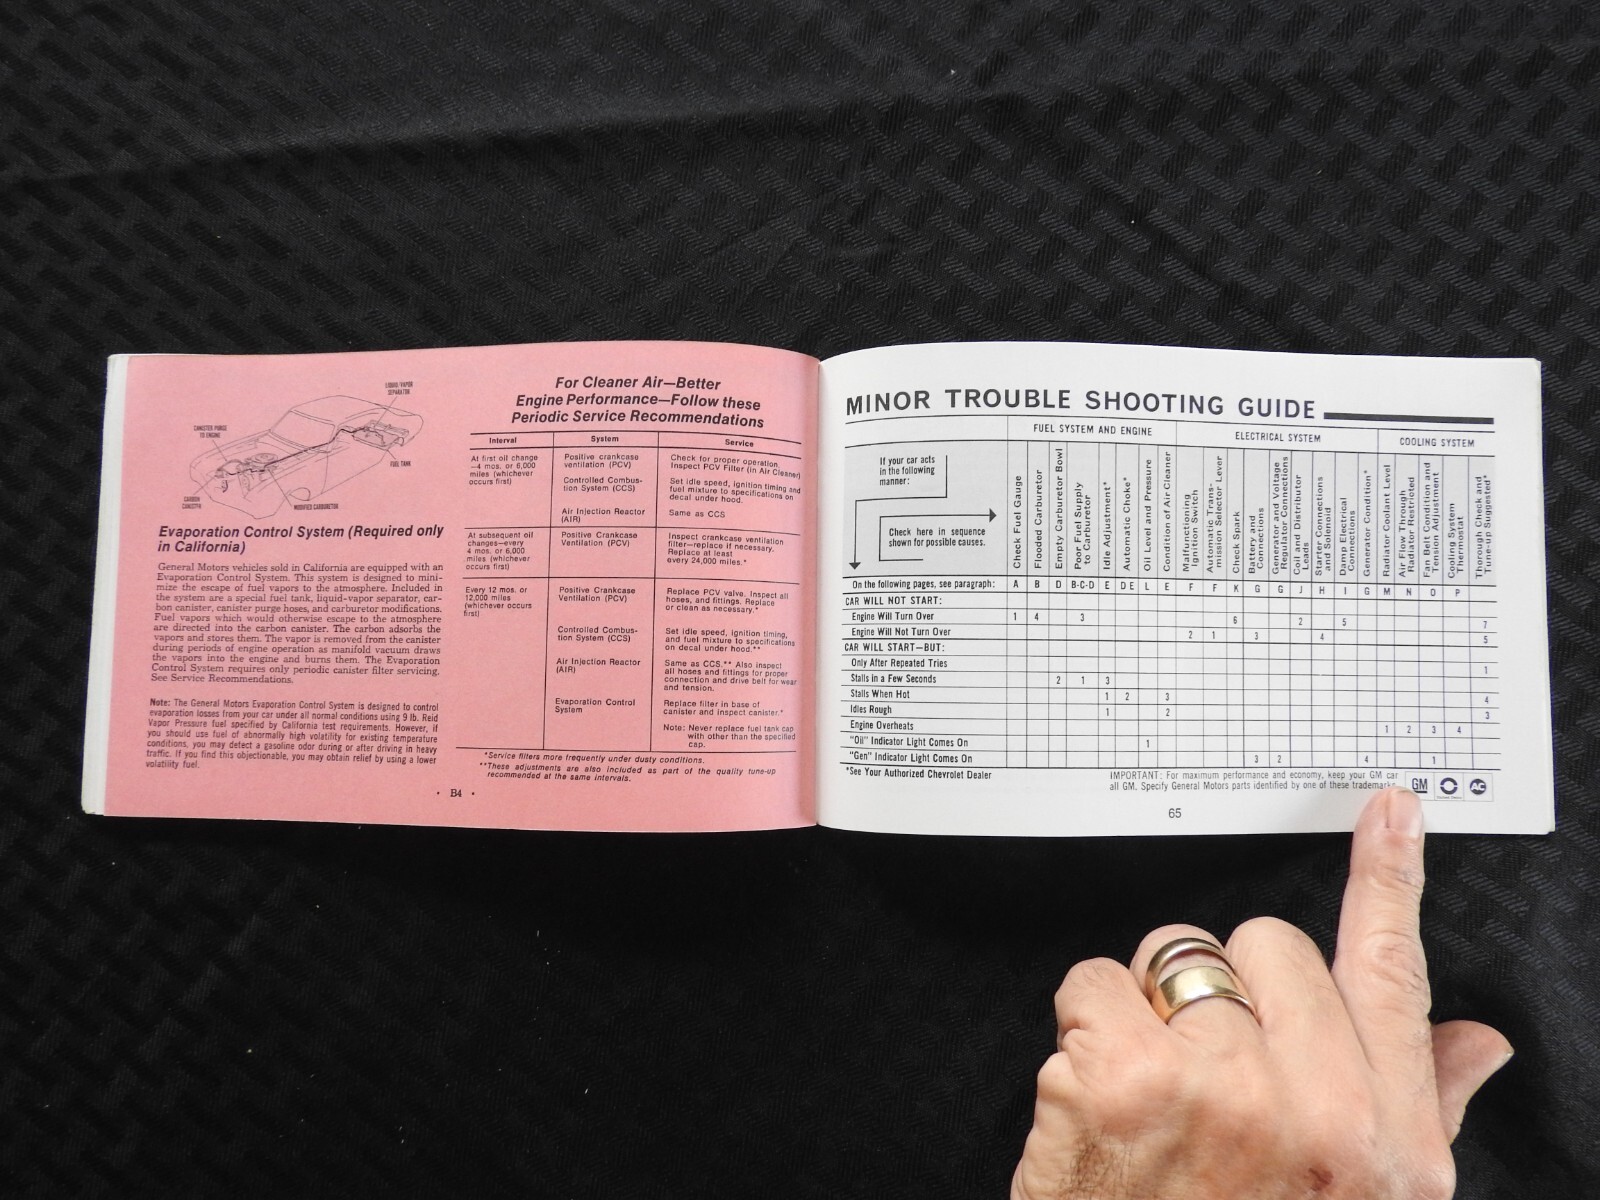 LIQUID/VAPOR
SEPARATOR
CANISTER PURGE
TO ENGINE
FUEL TANK
CARBON
CANISTER
MODIFIED CARBURETOR
Evaporation Control System (Required only
in California)
General Motors vehicles sold in California are equipped with an
Evaporation Control System. This system is designed to mini-
mize the escape of fuel vapors to the atmosphere. Included in
the system are a special fuel tank, liquid-vapor separator, car-
bon canister, canister purge hoses, and carburetor modifications.
Fuel vapors which would otherwise escape to the atmosphere
are directed into the carbon canister. The carbon adsorbs the
vapors and stores them. The vapor is removed from the canister
during periods of engine operation as manifold vacuum draws
the vapors into the engine and burns them. The Evaporation
Control System requires only periodic canister filter servicing.
See Service Recommendations.
Note: The General Motors Evaporation Control System is designed to control
evaporation losses from your car under all normal conditions using 9 lb. Reid
Vapor Pressure fuel specified by California test requirements. However, if
you should use fuel of abnormally high volatility for existing temperature
conditions, you may detect a gasoline odor during or after driving in heavy
traffic. If you find this objectionable, you may obtain relief by using a lower
volatility fuel.
For Cleaner Air—Better
Engine Performance—Follow these
Periodic Service Recommendations
Interval System Service
At first oil change
—4 mos. or 6,000
miles (whichever
occurs first)
Positive crankcase
ventilation (PCV)
Check for proper operation.
Inspect PCV Filter (in Air Cleaner)
Controlled Combus-
tion System (CCS)
Set idle speed, ignition timing and
fuel mixture to specifications on
decal under hood.
Air Injection Reactor
(AIR)
Same as CCS
At subsequent oil
changes—every
4 mos. or 6,000
miles (whichever
occurs first)
Positive Crankcase
Ventilation (PCV)
Inspect crankcase ventilation
filter—replace if necessary.
Replace at least
every 24,000 miles.*
Every 12 mos. or
12,000 miles
(whichever occurs
first)
Positive Crankcase
Ventilation (PCV)
Replace PCV valve. Inspect all
hoses, and fittings. Replace
or clean as necessary.*
Controlled Combus-
tion System (CCS)
Set idle speed, ignition timing,
and fuel mixture to specifications
on decal under hood.**
Air Injection Reactor
(AIR)
Same as CCS.** Also inspect
all hoses and fittings for proper
connection and drive belt for wear
and tension.
Evaporation Control
System
Replace filter in base of
canister and inspect canister.*
Note: Never replace fuel tank cap
with other than the specified
cap.
*Service filters more frequently under dusty conditions.
**These adjustments are also included as part of the quality tune-up
recommended at the same intervals.
• B4 •
MINOR TROUBLE SHOOTING GUIDE
FUEL SYSTEM AND ENGINE ELECTRICAL SYSTEM COOLING SYSTEM
If your car acts
in the following
manner:
Check here in sequence
shown for possible causes.
Check Fuel Gauge
Flooded Carburetor
Empty Carburetor Bowl
Poor Fuel Supply
to Carburetor
Idle Adjustment*
Automatic Choke*
Oil Level and Pressure
Condition of Air Cleaner
Malfunctioning
Ignition Switch
Automatic Trans-
mission Selector Lever
Check Spark
Battery and
Connections
Generator and Voltage
Regulator Connections
Coil and Distributor
Leads
Starter Connections
and Solenoid
Damp Electrical
Connections
Generator Condition*
Radiator Coolant Level
Air Flow Through
Radiator Restricted
Fan Belt Condition and
Tension Adjustment*
Cooling System
Thermostat
Thorough Check and
Tune-up Suggested*
On the following pages, see paragraph: A B D B-C-D E D E L E F F K G G J H I G M N O P
CAR WILL NOT START:
Engine Will Turn Over 1 4 3 6 2 5 7
Engine Will Not Turn Over 2 1 3 4 5
CAR WILL START—BUT:
Only After Repeated Tries 1
Stalls in a Few Seconds 2 1 3
Stalls When Hot 1 2 3 4
Idles Rough 1 2 3
Engine Overheats 1 2 3 4
"Oil" Indicator Light Comes On 1
"Gen" Indicator Light Comes On 3 2 4 1
*See Your Authorized Chevrolet Dealer
IMPORTANT: For maximum performance and economy, keep your GM car
all GM. Specify General Motors parts identified by one of these trademarks
GM
AC
65